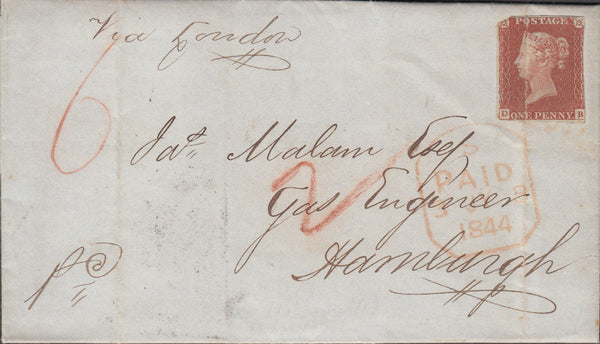 Via London
POSTAGE
ONE PENNY
D B
6
Jas. Malam Esq
2
Gas Engineer
Hamburgh
pd
S
PAID
1844